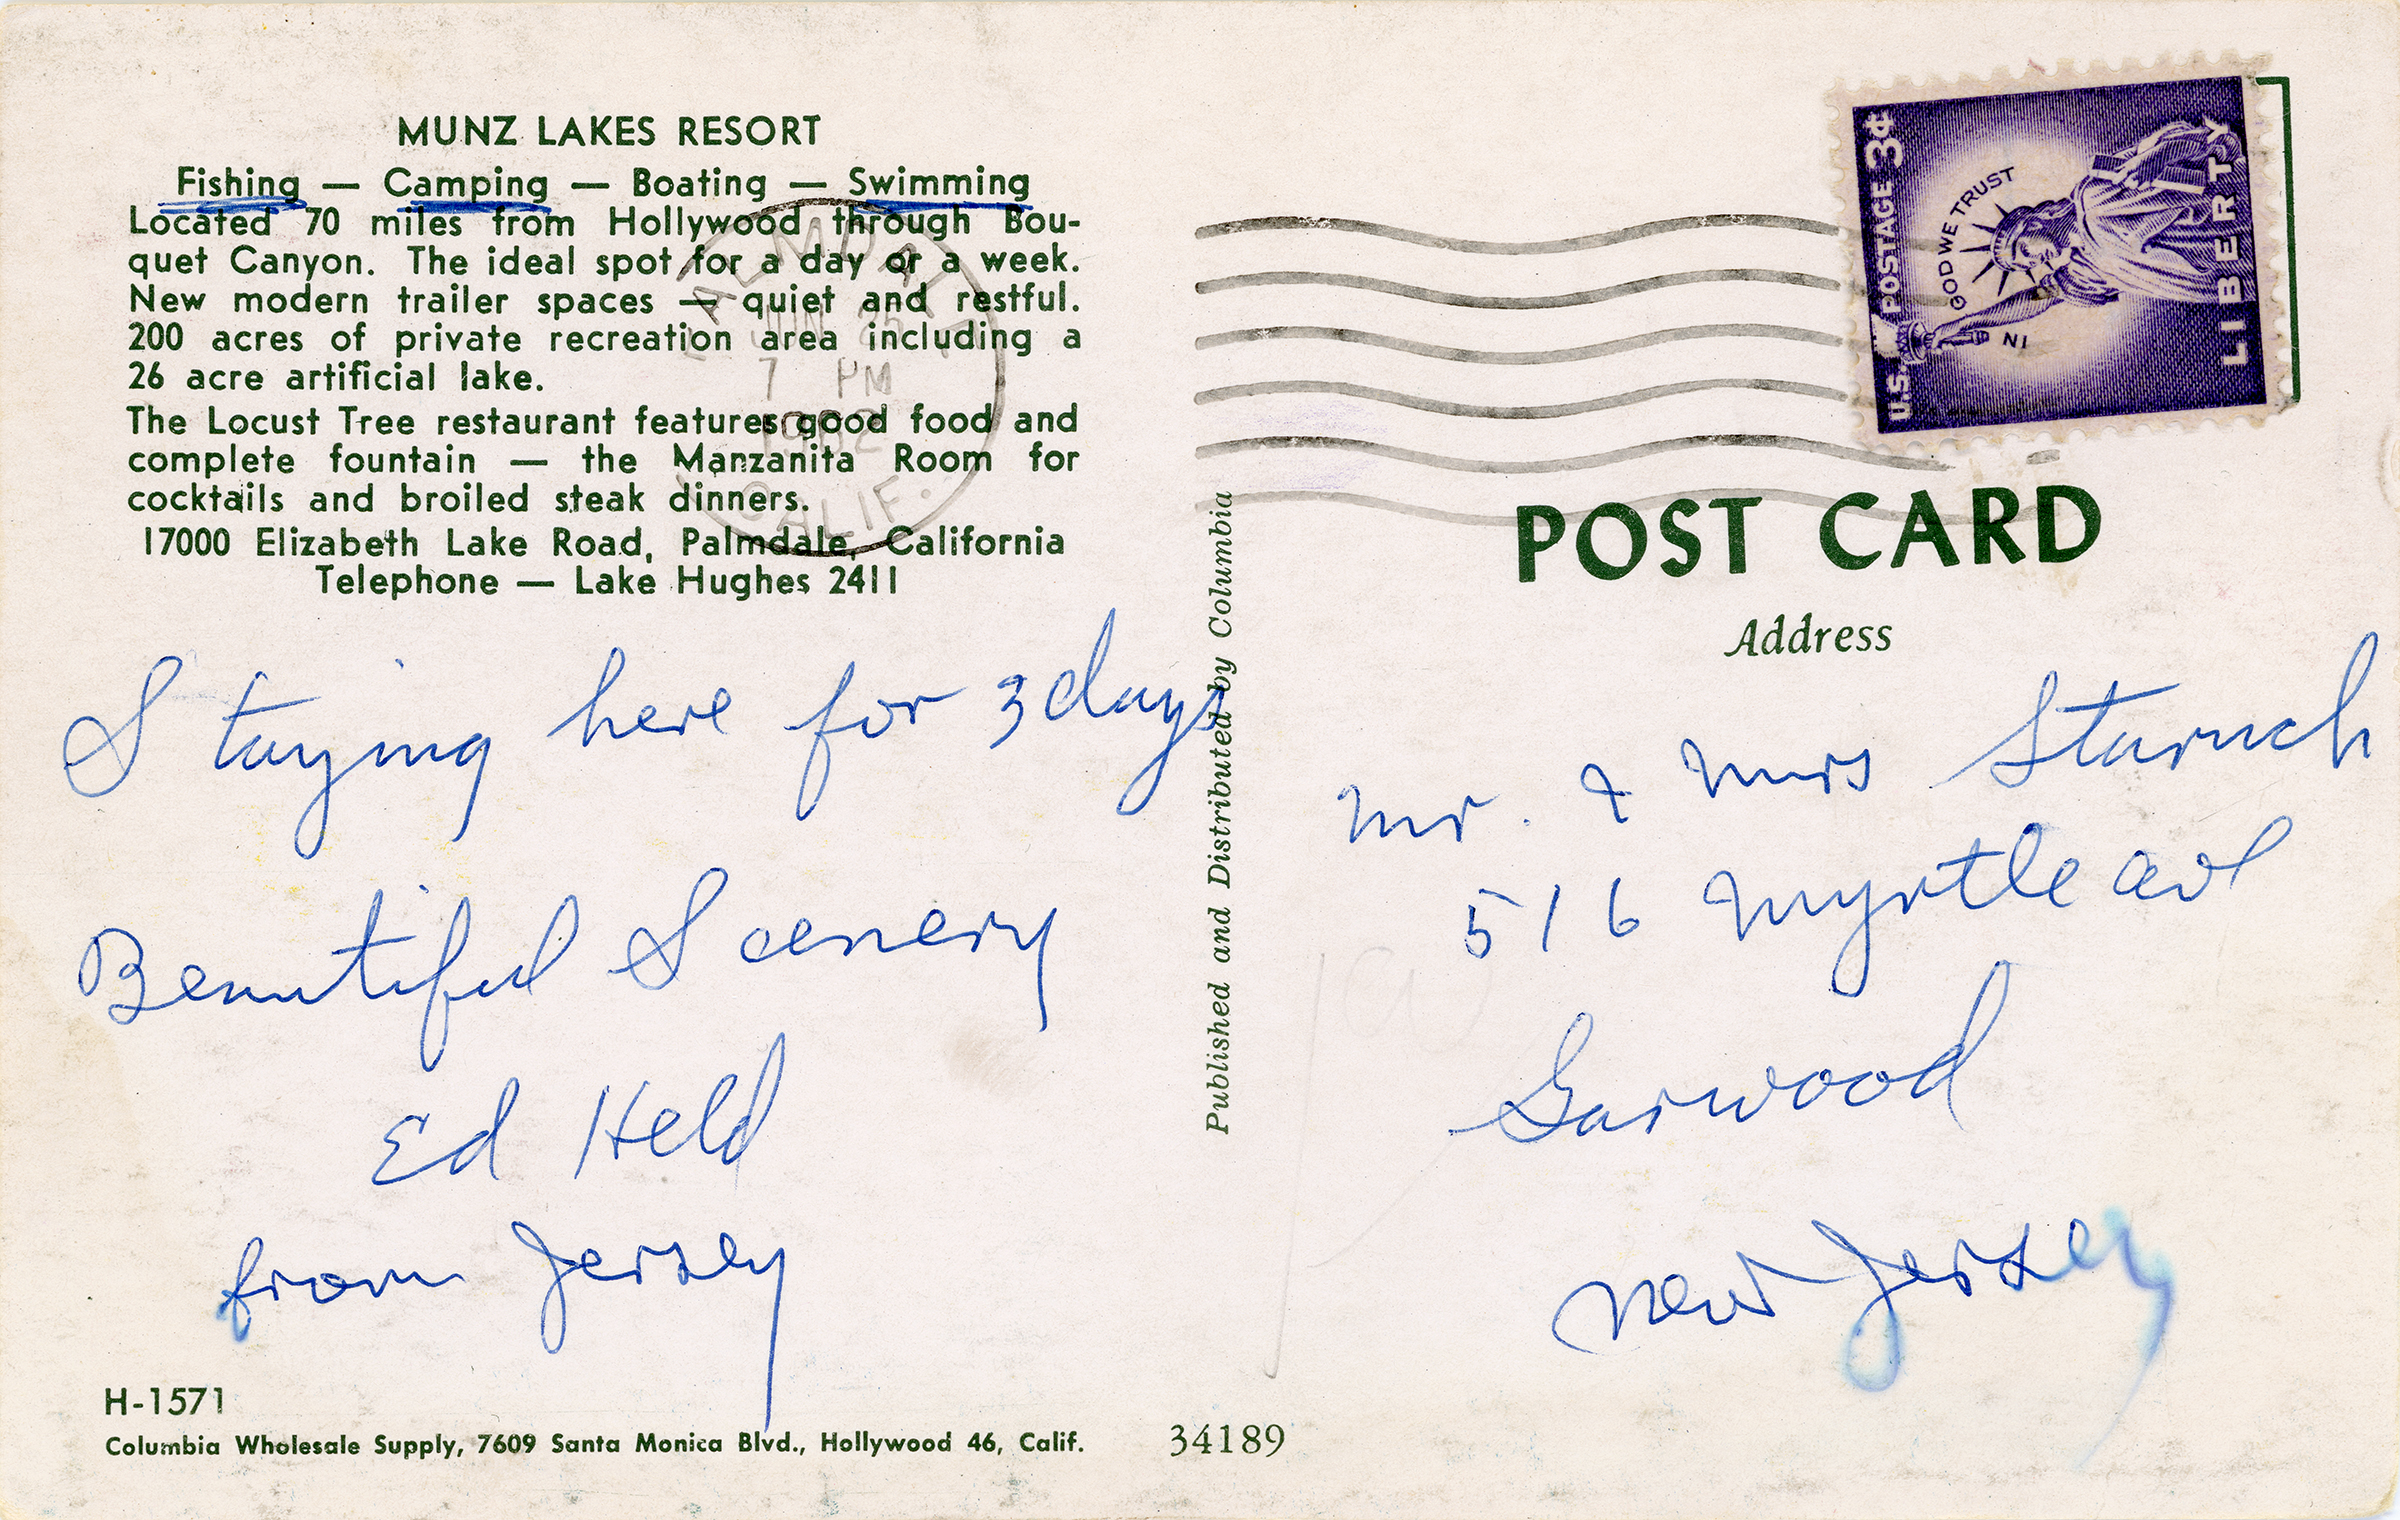 MUNZ LAKES RESORT
Fishing — Camping — Boating — Swimming
Located 70 miles from Hollywood through Bou-
quet Canyon. The ideal spot for a day or a week.
New modern trailer spaces — quiet and restful.
200 acres of private recreation area including a
26 acre artificial lake.
The Locust Tree restaurant features good food and
complete fountain — the Manzanita Room for
cocktails and broiled steak dinners.
17000 Elizabeth Lake Road, Palmdale, California
Telephone — Lake Hughes 2411
PALMDALE
JUN 25
7 PM
1962
CALIF.
Staying here for 3 days
Beautiful Scenery
Ed Held
from Jersey
H-1571
Columbia Wholesale Supply, 7609 Santa Monica Blvd., Hollywood 46, Calif.
34189
Published and Distributed by Columbia
U.S. POSTAGE 3¢
IN GOD WE TRUST
LIBERTY
POST CARD
Address
Mr. & Mrs
516 Myrtle ave
Garwood
New Jersey